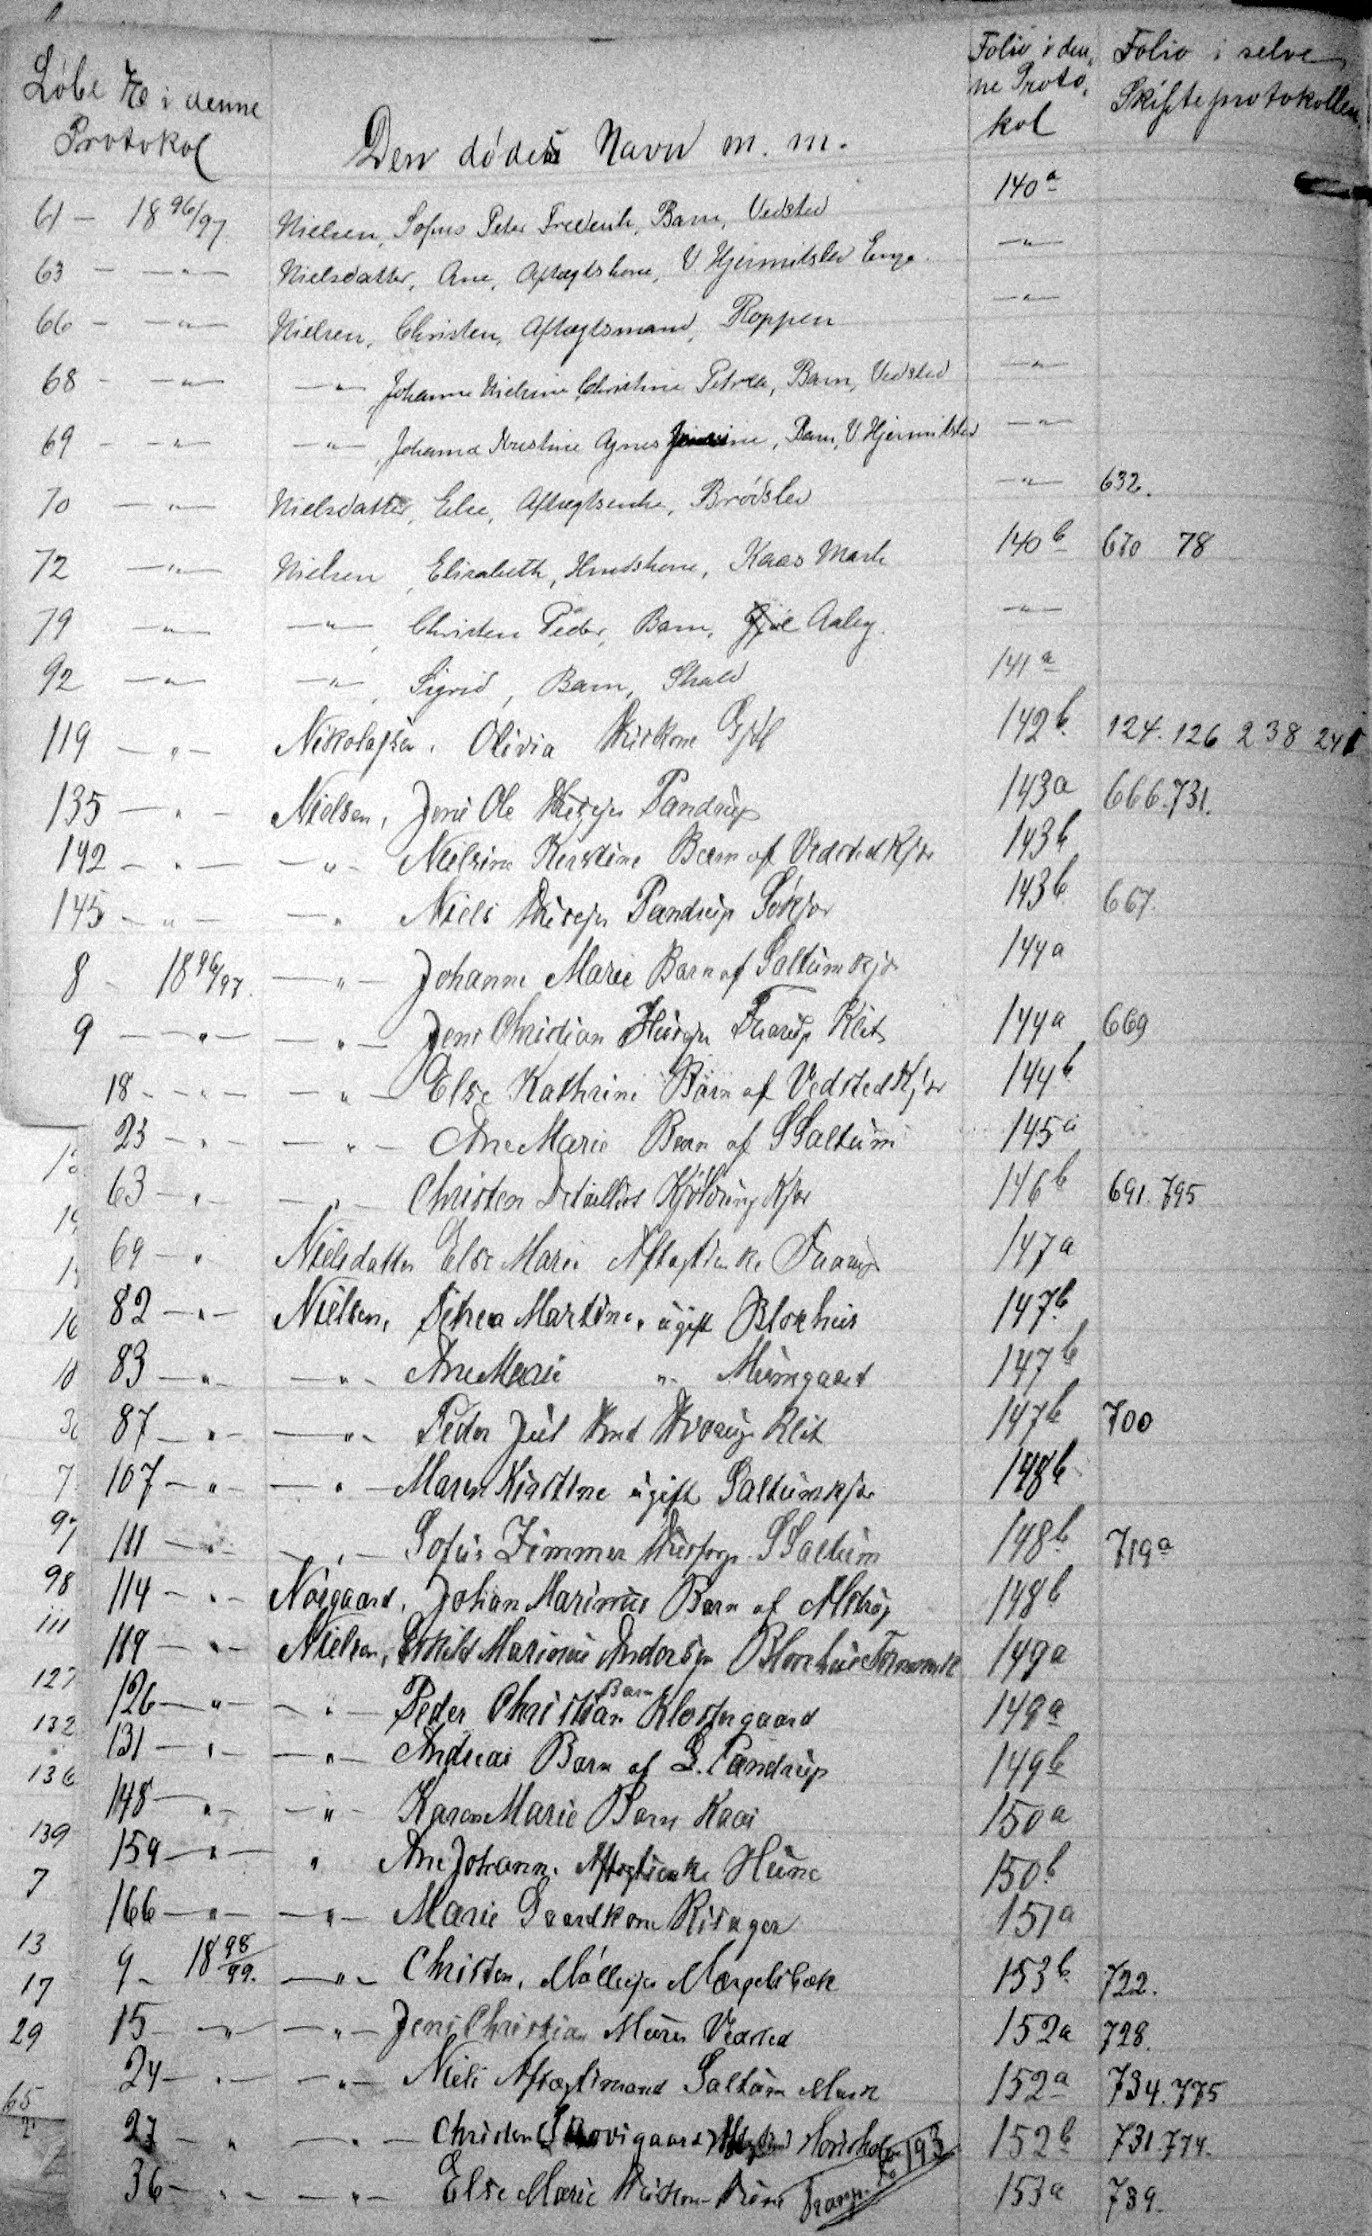 Løbe № i denne Protokol	Den dødes Navn m. m.	Folio i den, ne Proto, kol	Folio i selve Skifteprotokollen
61 - 1896/97	Nielsen, Sofus Peter Frederik, Barn, Vedsted	140a
63 - -"-	Nielsdatter, Ane, Aftægtskone, V Hjermitslev Enge	-"-
66 - -"-	Nielsen, Christen, Aftægtsmand, Roppen	-"-
68 - -"-	-"- Johanne Nielsine Christine Petrea, Barn, Vedsted	-"-
69 - -"-	-"-, Johanna Kristine Agnes, Barn, V Hjermitslev	-"-
70 -"-	Nielsdatter, Else, Aftægtsenke, Brødslev	-"-	632.
72 -"-	Nielsen, Elisabeth, Huuskone, Kaas Mark	140b	670 78
79 -"-	-"-, Christen Peder, Barn, Gjøl Aaby.	-"-
92 -"-	-"-, Sigrid, Barn, Skald	141a
119 -"-	Nikolajsen, Olivia Huskone Gjøl	142b	124. 126 238 241
135 -"-	Nielsen, Jens Ole Husejer Pandrup	143a	666. 731.
142 -"-	-"- Nielsine Kirstine Barn af Vedsted Kjær	143b
145 -"-	-"- Niels Husejer Pandrup Søkjær	143b	667.
8 - 1896/97.	-"- Johanne Marie Barn af Saltum Kjær	144a
9 -"-	-"- Jens Christian Husejer Faarup Klit	144a	669
18 -"-	-"- Else Kathrine Barn af Vedsted Kjær	144b
23 -"-	-"- Ane Marie Barn af S Saltum	145a
63 -"-	-"- Christen Detaillist Kjøldring Kjær	146b	691. 795
69 -"-	Nielsdatter Else Marie Aftægtsenke Faarup	147a
82 -"-	Nielsen, Petrea Martine, ugift Blokhus	147b
83 -"-	-"- Ane Marie "- Munegaard	147b
87 -"-	-"- Peder Juul Hmd Klit	147b	700
107 -"-	-"- Maren Kirstine ugift Saltumkjær	148b
111 -"-	-"- Sofus Zimmer Husforp. S Saltum	148b	719a
114 -"-	Nørgaard, Johan Marinus Barn af Alstrup	148b
119 -"-	Nielsen, Eskild Marinus Andersen Blokhus	149a
126 -"-	-"- Peder Christian Barn Klostergaard	149a
131 -"-	-"- Andreas Barn af S. Pandrup	149b
148 -"-	-"- Karen Marie Barn Kaas	150a
159 -"-	" Ane Johanne Aftægtsenke Hune	150b
166 -"-	-"- Marie Gaardkone Risager	151a
9 - 1898/99.	-"- Christen, Møllejer Mergelsbæk	153b	722.
15 -"-	-"- Jens Christian Murer Vedsted	152a	728.
24 -"-	-"- Niels Aftægtsmand Saltum Mark	152a	734. 775
27 -"-	-"- Christen	152b	731. 774.
36 -"-	-"- Else Marie Huskone Hune Transp. Fo 193	153a	739.
16
18
7
97
98
111
127
132
136
139
7
13
17
29
65